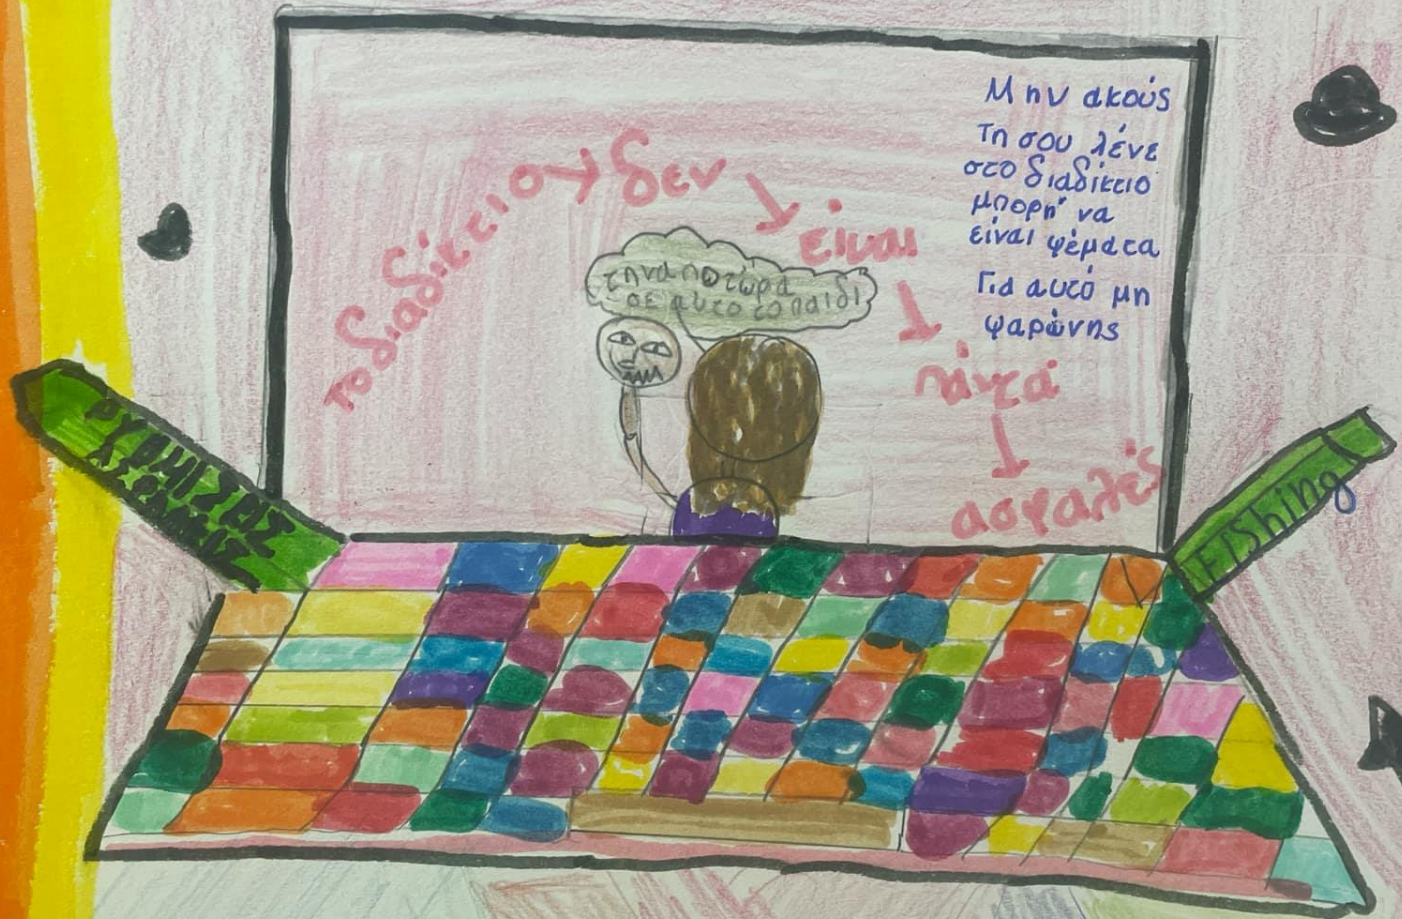 Μην ακούς
Τη σου λένε
στο διαδίκτιο
μπορή να
είναι ψέματα
Για αυτό μη
ψαρώνης
το διαδίκτειο → δεν → είναι → πάντα → ασφαλές
τη να πω τώρα
σε αυτο το παιδί
ΡΥΘΜΙΣΑΣ
ΑΣΦΑΛΕΙΣ
FIShing